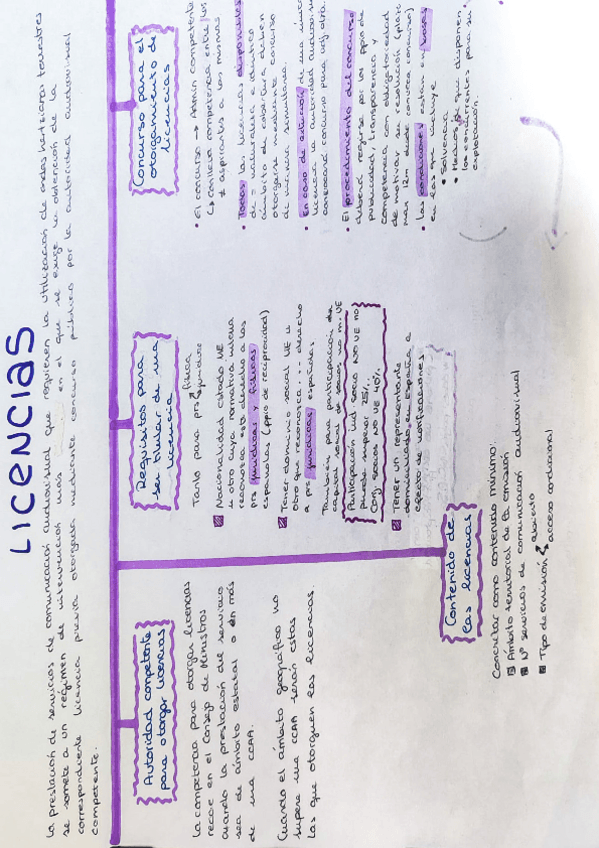 LICENCIAS
La prestación de servicios de comunicación audiovisual que requieren la utilización de ondas hertzianas terrestres
se somete a un régimen de intervención más en el que se exige la obtención de la
correspondiente licencia previa otorgada mediante concurso público por la autoridad audiovisual
competente.
Autoridad competente
para otorgar licencias
La competencia para otorgar licencias
recae en el Consejo de Ministros
cuando la prestación del servicio
sea de ámbito estatal o en más
de una CCAA.
Cuando el ámbito geográfico no
supere una CCAA serán estas
las que otorguen las licencias.
Requisitos para
ser titular de una
licencia
Tanto para prs física
jurídica
Nacionalidad estado UE
u otro cuya normativa interna
reconozca este derecho a las
prs jurídicas y físicas
españolas (ppio de reciprocidad)
Tener domicilio social UE u
otro que reconozca... derecho
a prs jurídicas españolas
También para participación de
capital social de socios no m. UE
Participación ind socio NO UE no
puede superar 25%.
Conj. socios NO UE 40%
Tener un representante
domiciliado en España a
efecto de notificaciones
Contenido de
las licencias
Concretar como contenido mínimo:
Ámbito territorial de la emisión
Nº servicios de comunicación audiovisual
Tipo de emisión abierto
acceso condicional
Concurso para el
otorgamiento de
licencias
• El concurso → Admón competente
↳ conlleva competencia entre los
≠ aspirantes a las mismas
• Todas las licencias disponibles
de = naturaleza e idéntico
ámbito de cobertura deben
otorgarse mediante concurso
de manera simultánea.
• En caso de extinción de una única
licencia la autoridad audiovisual
convocará concurso para adj otra.
• El procedimiento del concurso
deberá regirse por los ppios de
publicidad, transparencia y
competencia con obligatoriedad
de motivar su resolución (plazo
máx 12m desde convoca concurso)
• Las condiciones están en bases
en las que incluye
• Solvencia
• Medios de que disponen
los concurrentes para su
explotación.